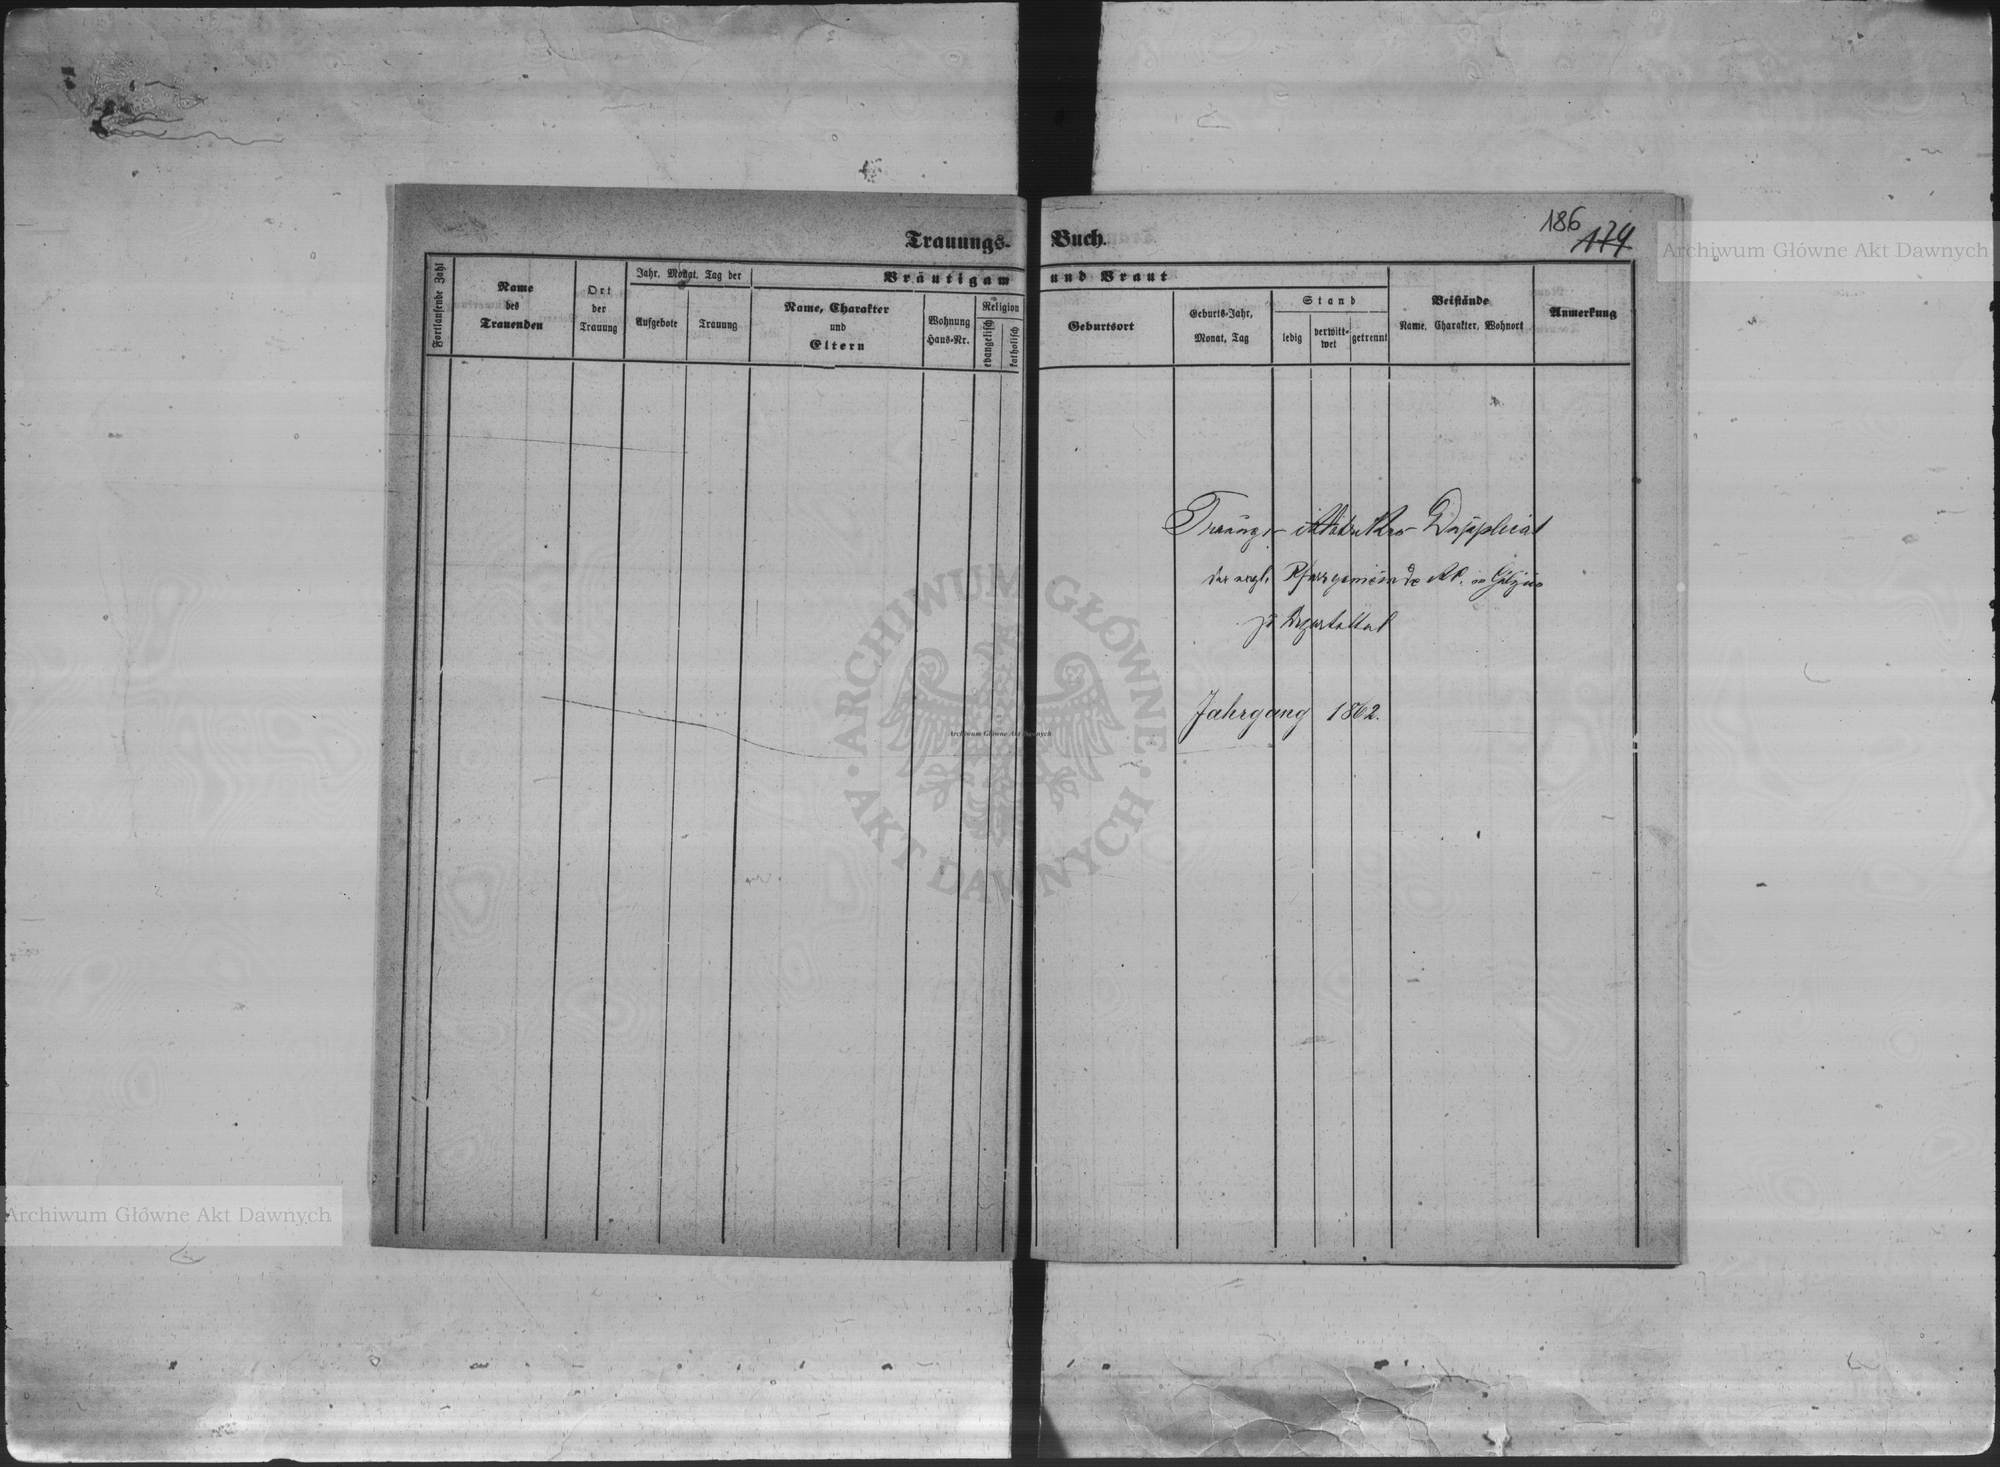 186
174
Archiwum Główne Akt Dawnych
Trauungs- Buch.
Fortlaufende Zahl
Name
des
Trauenden
Ort
der
Trauung
Jahr, Monat, Tag der
Aufgebote
Trauung
Bräutigam und Braut
Name, Charakter
und
Eltern
Wohnung
Haus-Nr.
Religion
evangelisch
katholisch
Geburtsort
Geburts-Jahr,
Monat, Tag
Stand
ledig
verwitt-
wet
getrennt
Beistände
Name, Charakter, Wohnort
Anmerkung
Trauungs- Matriken- Duplicat
der evgl. Pfarrgemeinde AC.
zu Ugartsthal
Jahrgang 1862.
ARCHIWUM GŁÓWNE
AKT DAWNYCH
Archiwum Główne Akt Dawnych
Archiwum Główne Akt Dawnych